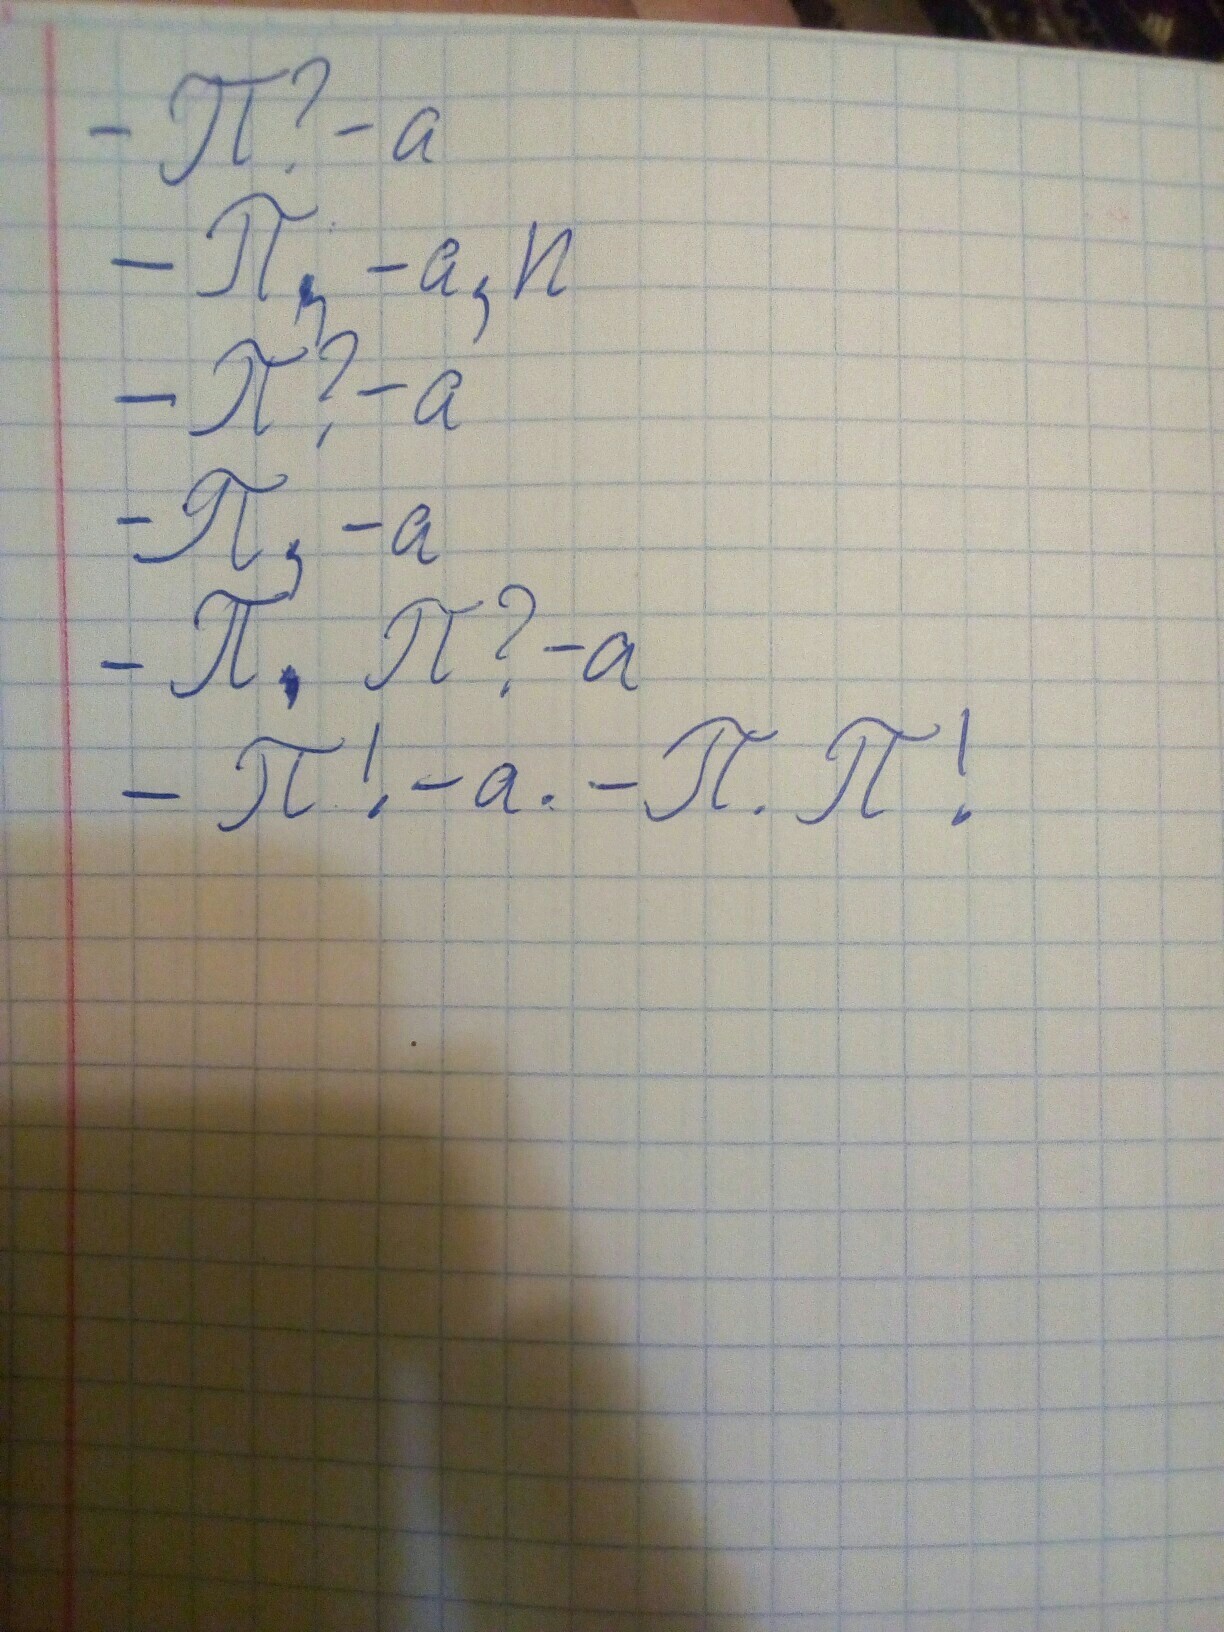 - П? - а
- П, - а, п
- П? - а
- П, - а
- П, П? - а
- П! - а. - П. П!